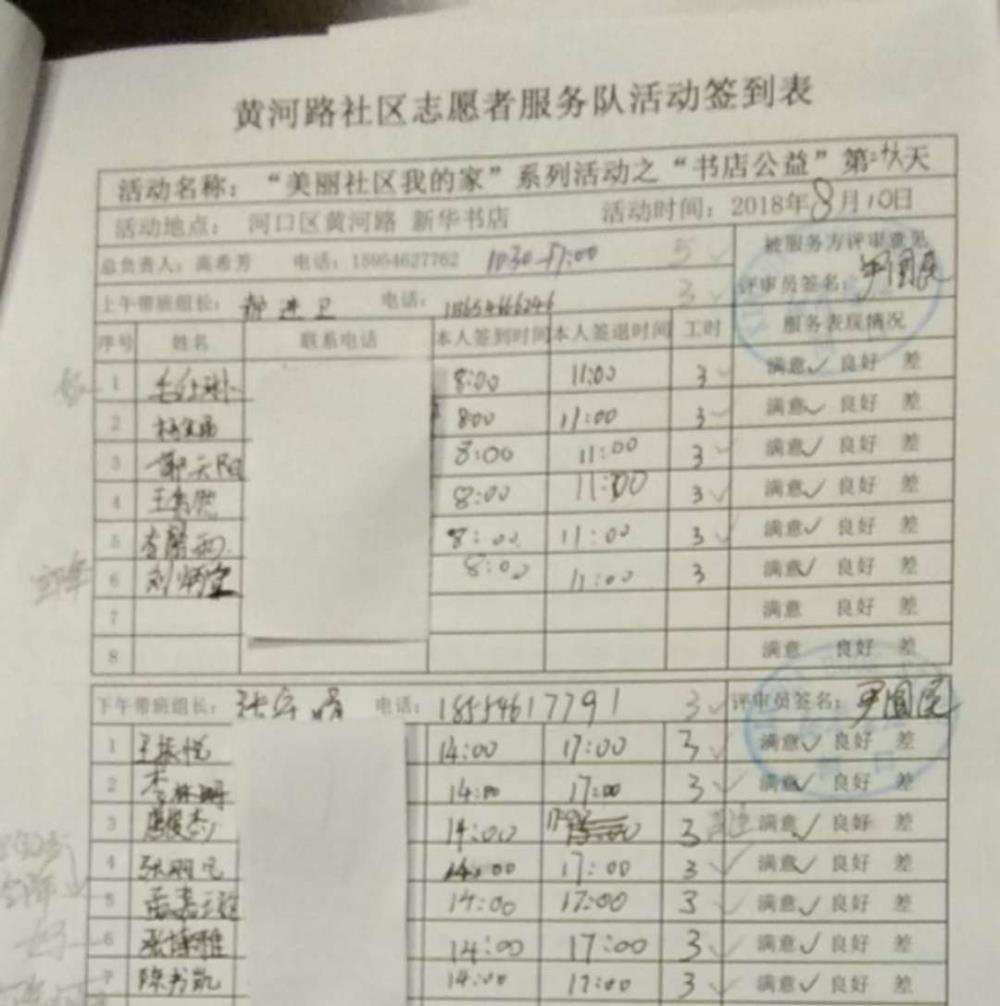 黄河路社区志愿者服务队活动签到表
活动名称：“美丽社区我的家”系列活动之“书店公益”第 天
活动地点： 河口区黄河路 新华书店 活动时间：2018年8月10日
总负责人：高希芳 电话：15954627762 10:30-17:00 5 被服务方评审意见
上午带班组长： 电话： 3 评审员签名：尹国良
序号 姓名 联系电话 本人签到时间 本人签退时间 工时 服务表现情况
1 8:00 11:00 3 满意✓ 良好 差
2 800 11:00 3 满意✓ 良好 差
3 郭天阳 8:00 11:00 3 满意✓ 良好 差
4 8:00 11:00 3 满意✓ 良好 差
5 8:00 11:00 3 满意✓ 良好 差
6 刘炳 8:00 11:00 3 满意✓ 良好 差
7 满意 良好 差
8 满意 良好 差
下午带班组长： 电话：18554617791 3 评审员签名：尹国良
1 王振悦 14:00 17:00 3 满意✓ 良好 差
2 14:00 17:00 3 满意✓ 良好 差
3 唐俊杰 14:00 3 满意✓ 良好 差
4 张明凡 14:00 17:00 3 满意✓ 良好 差
5 14:00 17:00 3 满意✓ 良好 差
6 张博雅 14:00 17:00 3 满意✓ 良好 差
7 陈书凯 14:00 17:00 3 满意✓ 良好 差